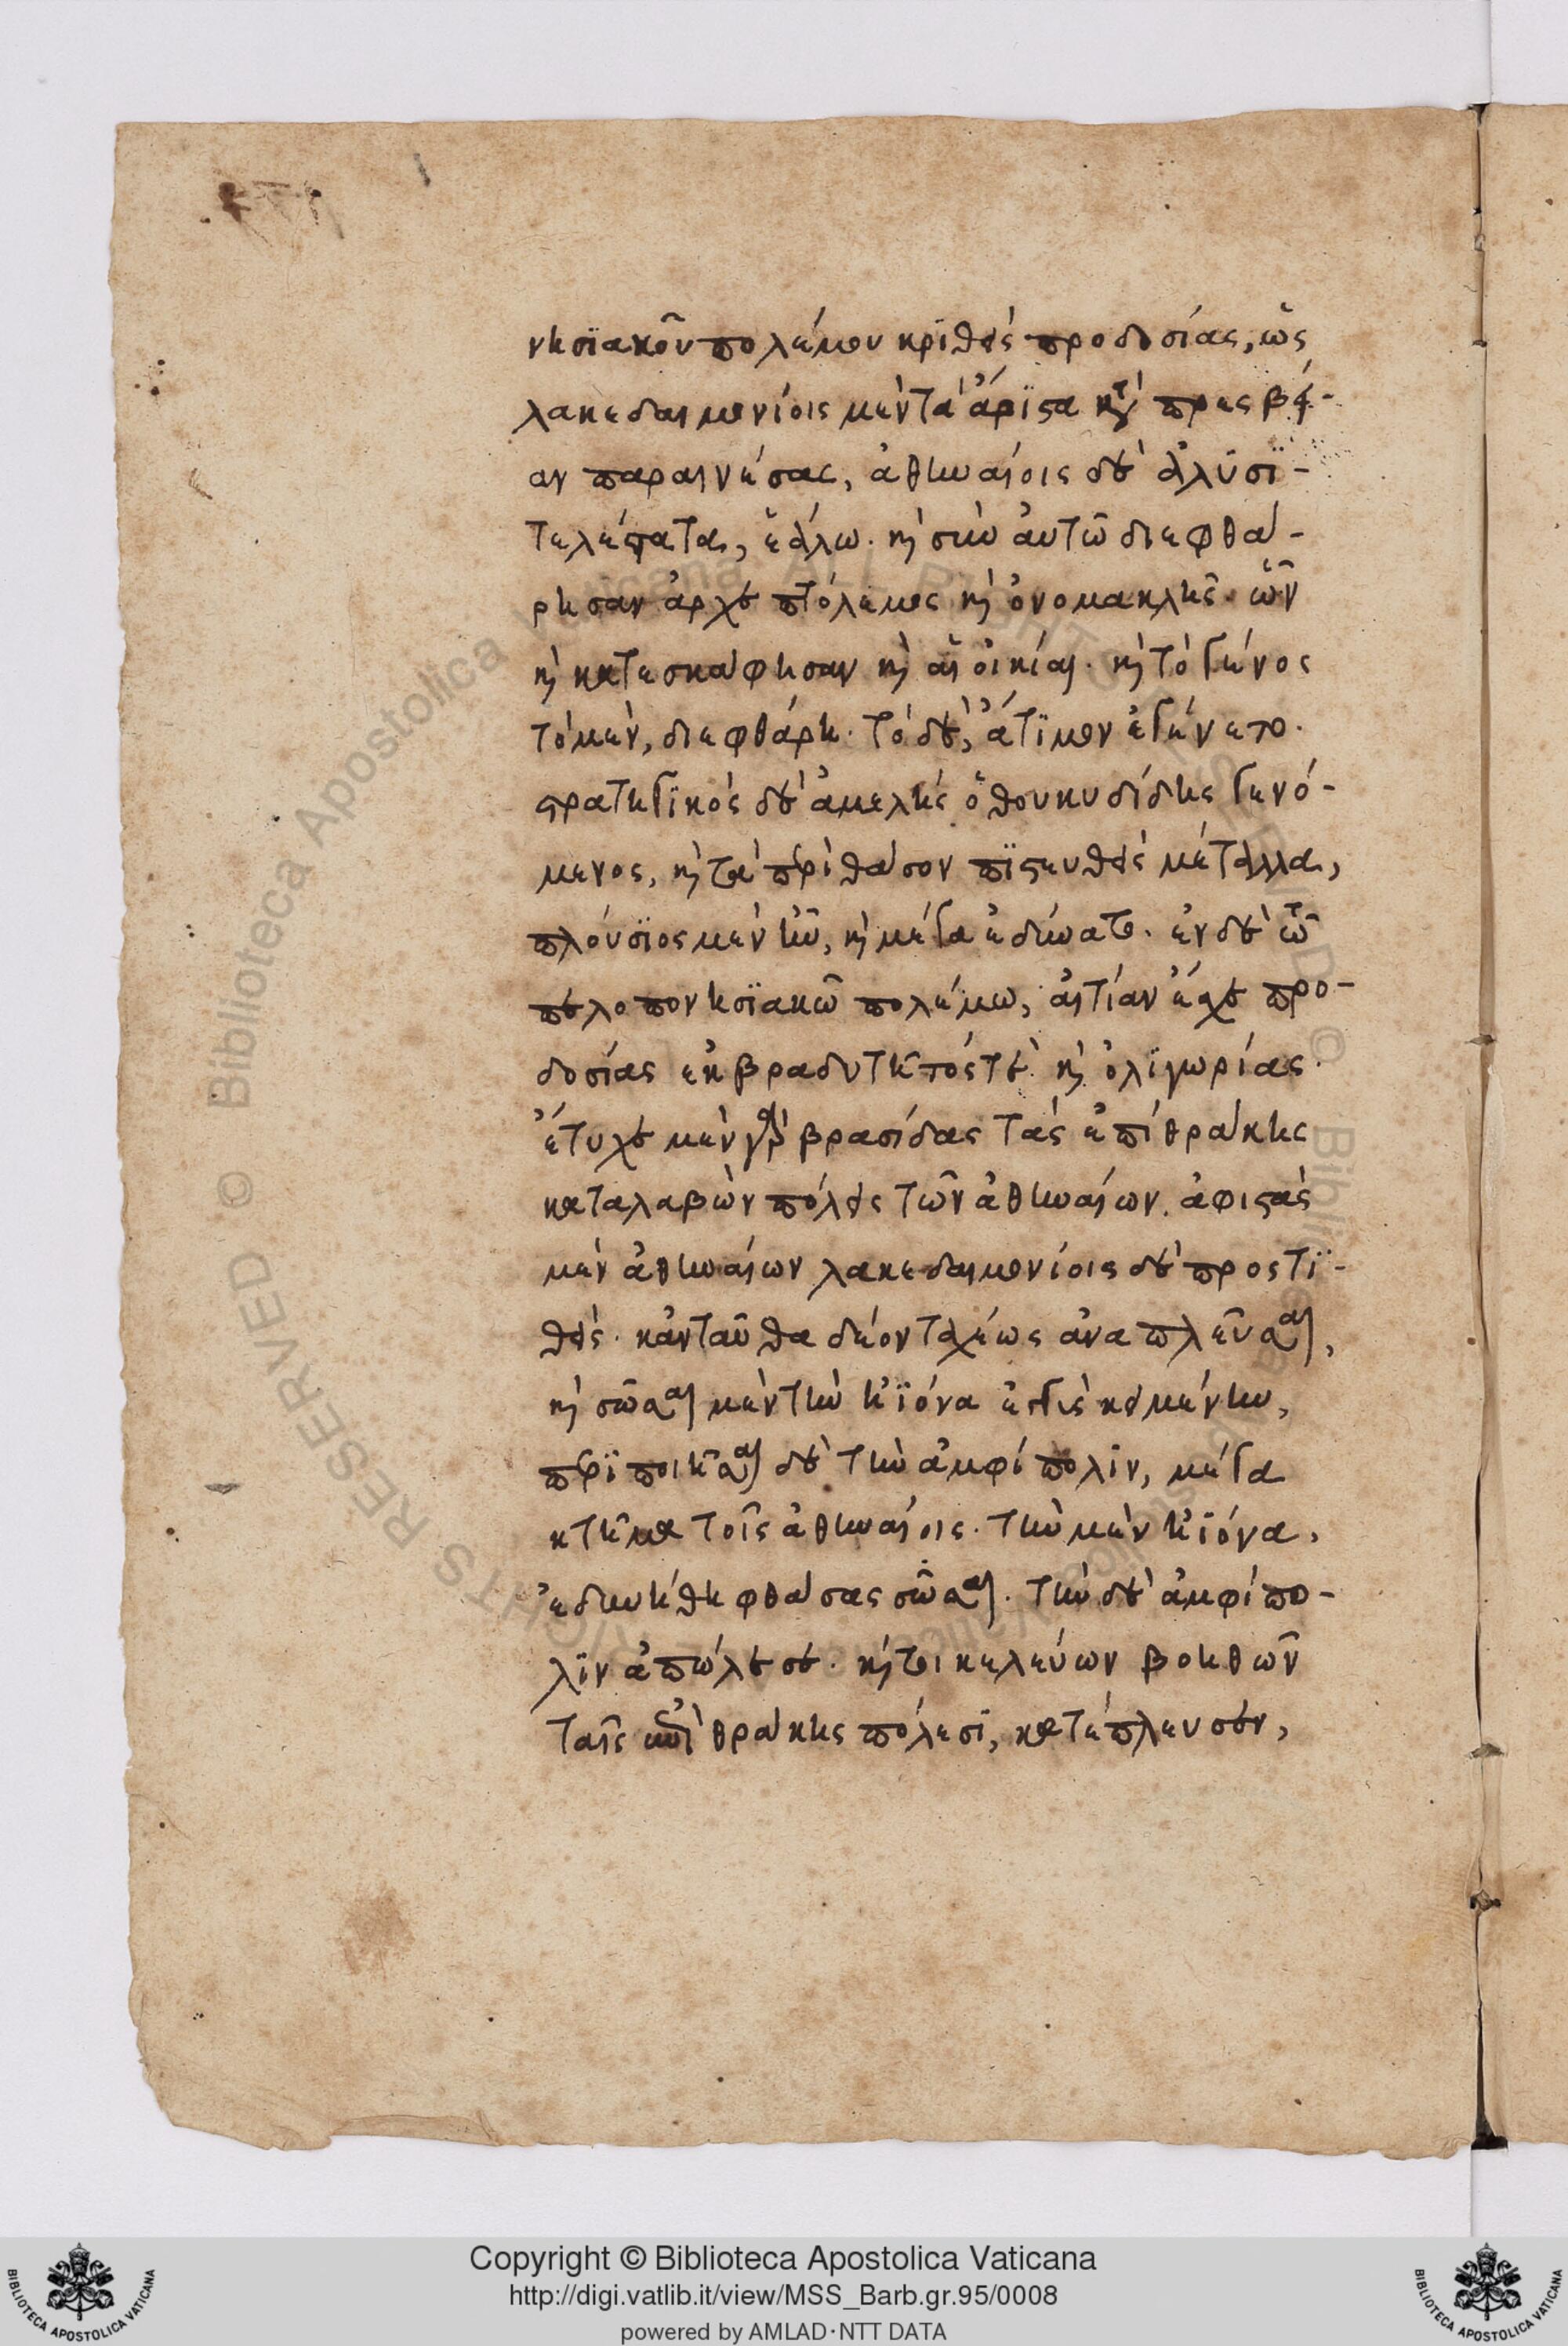 νησϊακοῦ πολέμου κρϊθεὶς προδοσίας, ὡς
λακεδαιμονίοις μὲν τὰ ἄρϊστα κατὰ πρεσβεί-
αν παραινέσας, ἀθηναίοις δὲ ἀλυσϊ-
τελέστατα, ἑάλω. καὶ σὺν ἀυτῶ διεφθά-
ρησαν ἀρχεπτόλεμος καὶ ὀνομακλῆς. ὧν
καὶ κατεσκάφησαν καὶ αἱ οἰκίαι. καὶ τὸ γένος
τὸ μὲν, διεφθάρη. τὸ δὲ, ἄτϊμον ἐγένετο.
στρατηγϊκὸς δὲ ἀμελὴς ὁ θουκυδίδης γενό-
μενος, καὶ τὰ περὶ θάσον πϊστευθεὶς μέταλλα,
πλούσϊος μὲν ἦν, καὶ μέγα ἐδύνατο. ἐν δὲ τῶ
πελοποννησϊακῶ πολέμω, ἀιτίαν ἔχε προ-
δοσίας ἐκ βραδυτῆτός τε καὶ ὀλϊγωρίας.
ἔτυχε μὲν γὰρ βρασίδας τὰς ἐπὶ θράκης
καταλαβὼν πόλεις τῶν ἀθηναίων. ἀφιστὰς
μὲν ἀθηναίων λακεδαιμονίοις δὲ προστϊ-
θείς. κἀνταῦθα δέον ταχέως ἀναπλεῦσαι,
καὶ σῶσαι μὲν τὴν ἠϊόνα ἐγγὺς κειμένην,
περϊποιῆσαι δὲ τὴν ἀμφίπολϊν, μέγα
κτῆμα τοῖς ἀθηναίοις. τὴν μὲν ἠϊόνα,
ἐδυνήθη φθάσας σῶσαι. τὴν δὲ ἀμφίπο-
λϊν ἀπώλεσε. καίτοι κελεύων βοηθῶν
ταῖς ἐπὶ θράκης πόλεσϊ, κατέπλευσεν,
Copyright © Biblioteca Apostolica Vaticana
http://digi.vatlib.it/view/MSS_Barb.gr.95/0008
powered by AMLAD·NTT DATA